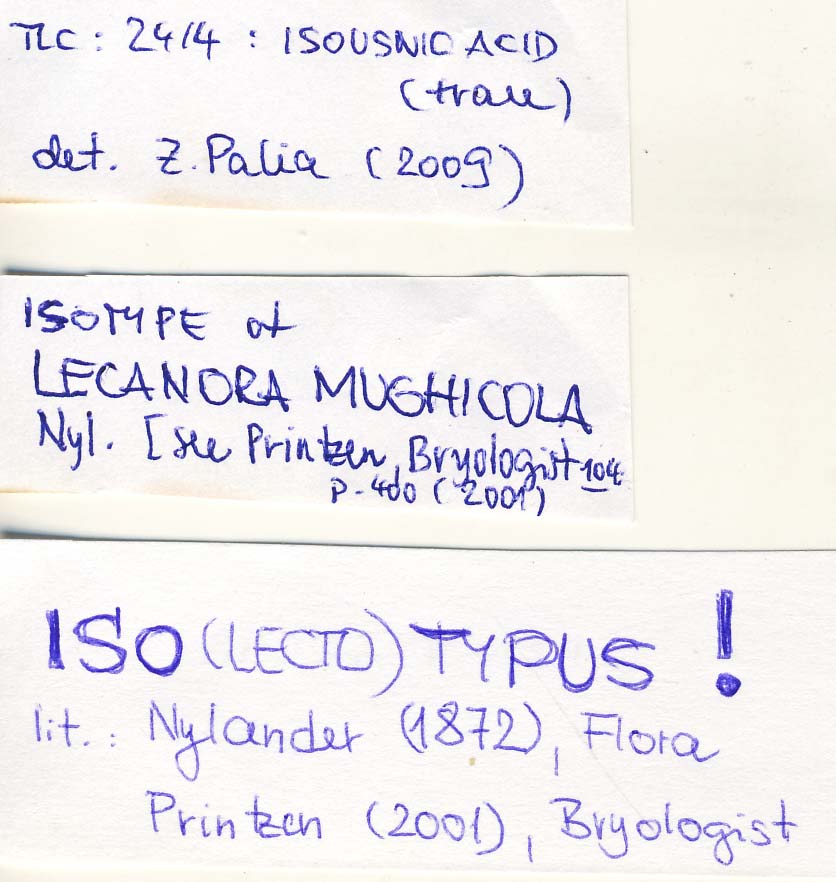 TLC : 24/4 : ISOUSNIC ACID
(trace)
det. Z. Palia (2009)
ISOTYPE of
LECANORA MUGHICOLA
Nyl. [see Printzen, Bryologist 104
p. 400 (2001)
ISO (LECTO) TYPUS !
lit.: Nylander (1872), Flora
Printzen (2001), Bryologist